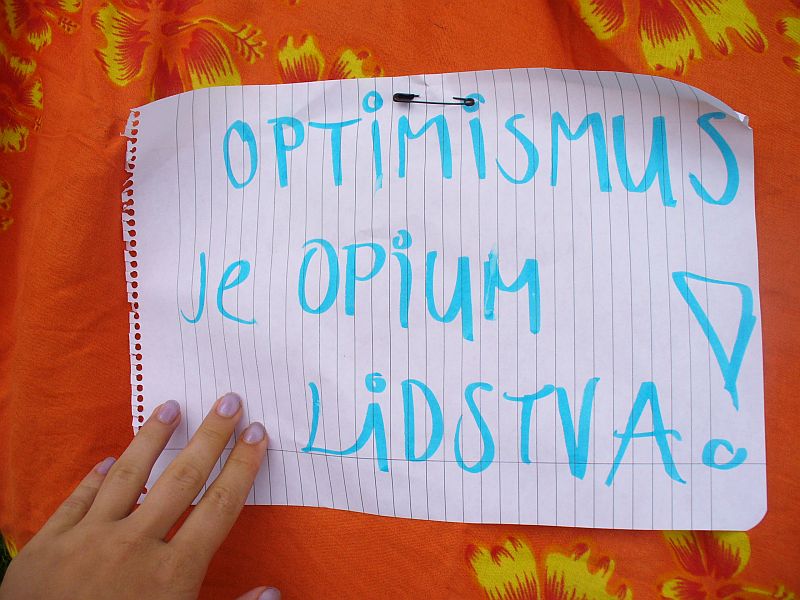 OPTiMiSMUS
je OPiUM
LiDSTVA!